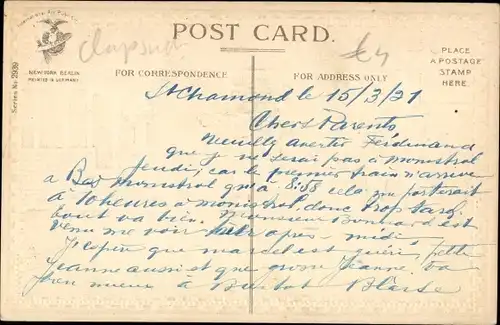 POST CARD.
NEW YORK BERLIN
PRINTED IN GERMANY
Series No 2939
FOR CORRESPONDENCE
FOR ADDRESS ONLY
PLACE
A POSTAGE
STAMP
HERE
St Chamond le 15/3/21
Chers Parents
Neuilly avertir Ferdinand
que je ne serai pas à monistrol
Jeudi, car le premier train n'arrive
à Bas monistrol qu'à 8:58 cela me porterait
à 10 heures à monistrol, donc trop tard.
tout va bien. Monsieur est
venu me voir hier après midi,
J'espère que marcel est guéri, petite
jeanne aussi et que grosse Jeanne. va
bien mieux à